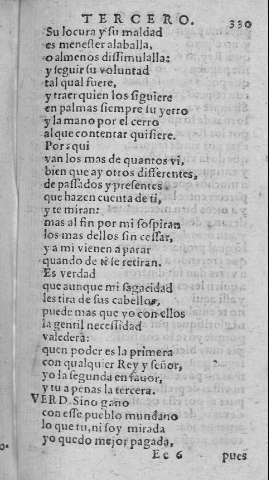 TERCERO. 330
Su locura y su maldad
es menester alaballa,
o almenos dissimulalla:
y seguir su voluntad
tal qual fuere,
y traer quien los siguiere
en palmas siempre su yerro
y la mano por el cerro
al que contentar quisiere.
Por aqui
van los mas de quantos vi,
bien que ay otros differentes,
de passados y presentes
que hazen cuenta de ti,
y te miran:
mas al fin por mi sospiran
los mas dellos sin cessar,
y a mi vienen a parar
quando de ti se retiran.
Es verdad
que aunque mi sagacidad
les tira de sus cabellos,
puede mas que yo con ellos
la gentil necessidad
valedera:
quen poder es la primera
con qualquier Rey y señor,
yo la segunda en fauor,
y tu a penas la tercera.
VERD. Sino gano
con esse pueblo mundano
lo que tu, ni soy mirada
yo quedo mejor pagada,
Ee 6 pues